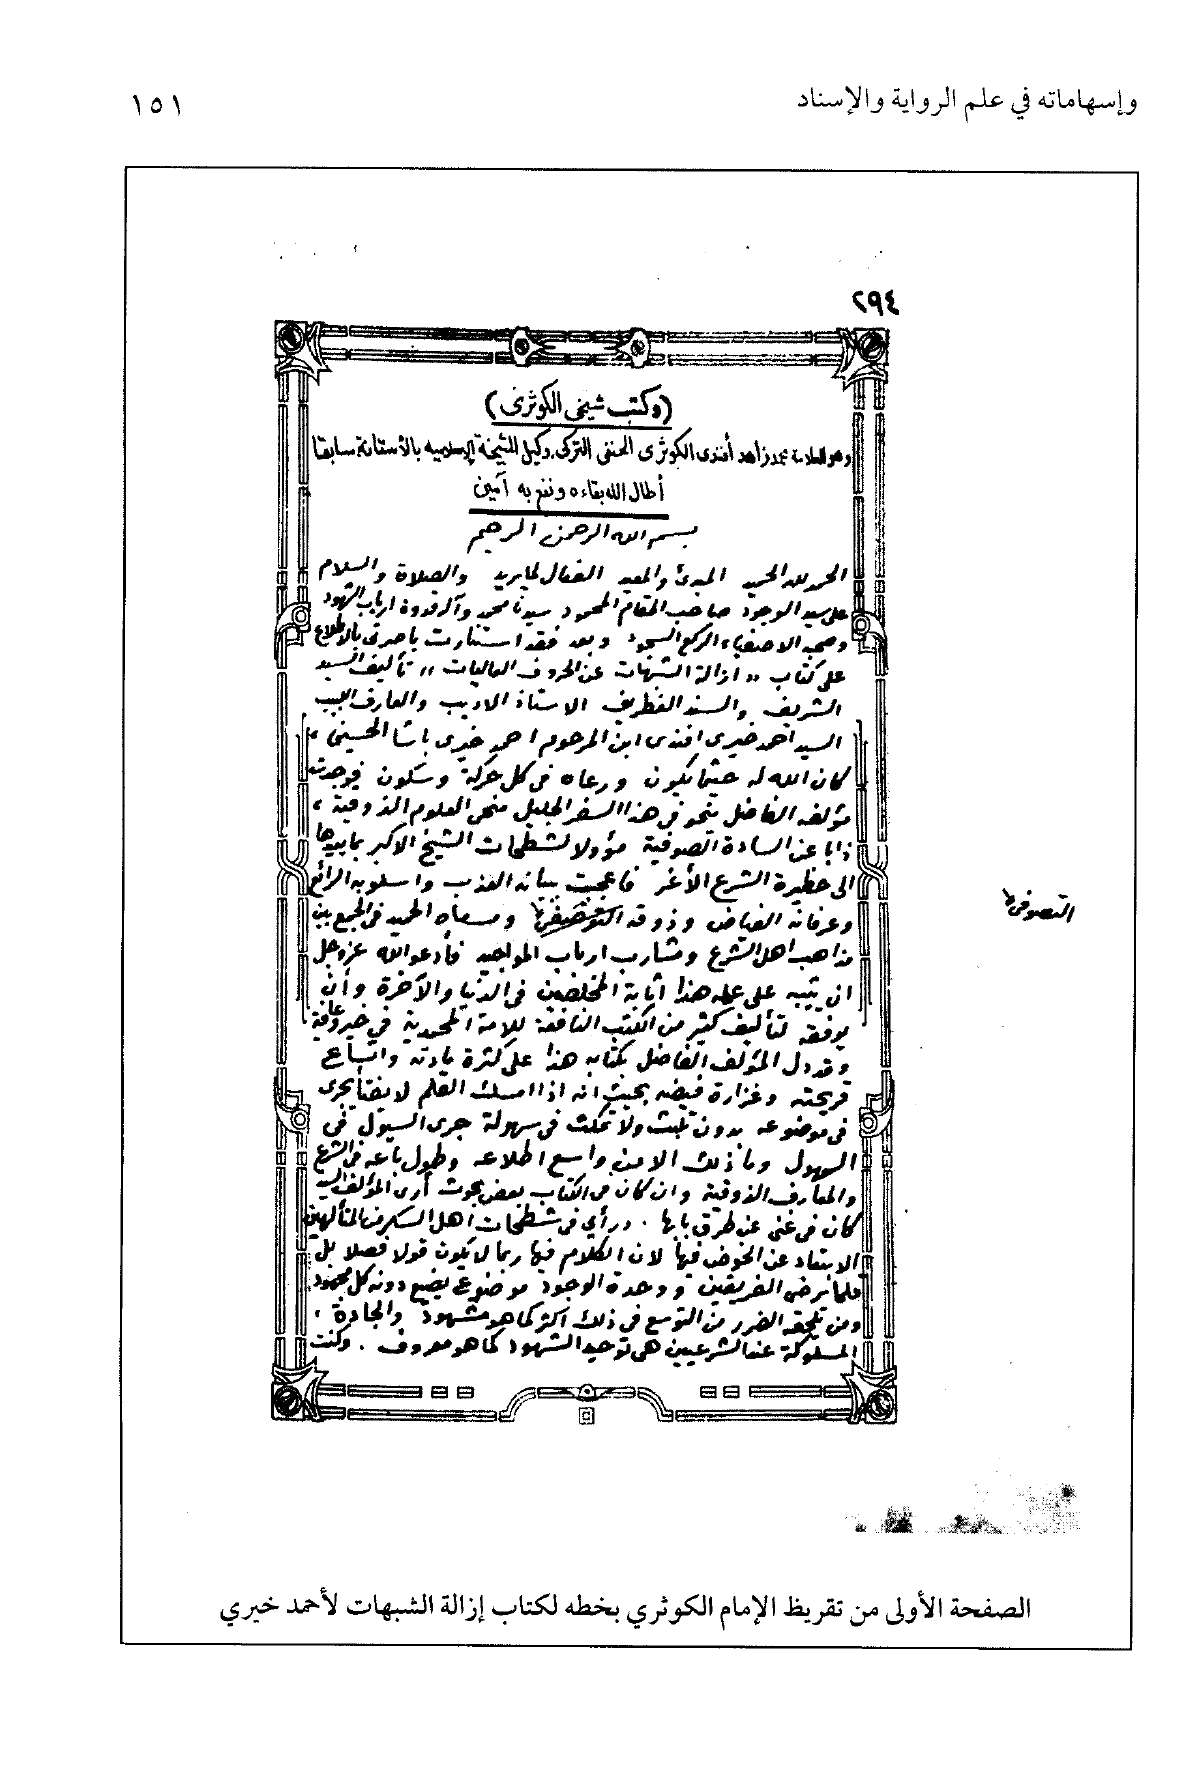 وإسهاماته في علم الرواية والإسناد
١٥١
٢٩٤
(وكتب شيخي الكوثري)
وهو العلامة محمد زاهد أفندي الكوثرى الحنفى التركى. وكيل المشيخة الإسلاميه بالأستانة سابقا
أطال الله بقاءه ونفع به آمين
بسم الله الرحمن الرحيم
الحمد لله الحميد المبدئ والمعيد الفعال لما يريد والصلاة والسلام
على سيد الوجود صاحب المقام المحمود سيدنا محمد وآله قدوة ارباب الشهود
وصحبه الاصفياء الركع السجود وبعد فقد استنارت باصرتى بالاطلاع
على كتاب «ازالة الشبهات عن الحروف العاليات» تأليف السيد
الشريف والسند الغطريف الاستاذ الاديب والعارف اللبيب
السيد احمد خيرى افندى ابن المرحوم احمد خيرى باشا الحسينى ،
كان الله له حيثما يكون ورعاه فى كل حركة وسكون فوجدت
مؤلفه الفاضل ينحو فى هذا السفر الجليل منحى العلوم الذوقية ،
ذابا عن السادة الصوفية مؤولا لشطحات الشيخ الاكبر بما يعيدها
الى حظيرة الشرع الأغر فاعجبت ببيانه العذب واسلوبه الرائع
وعرفانه الفياض وذوقه ومسعاه الحميد فى الجمع بين
التصوفى
مذاهب اهل الشرع ومشارب ارباب المواجيد فأدعو الله عز وجل
ان يثيبه على عمله هذا اثابة المخلصين فى الدنيا والآخرة وأن
يوفقه لتأليف كثير من الكتب النافعة للامة المحمدية في خير وعافية
وقد دل المؤلف الفاضل بكتابه هذا على كثرة مادته واتساع
قريحته وغزارة فيضه بحيث انه اذا امسك القلم لا يفتأ يجرى
فى موضوعه بدون تلبث ولا تمكث فى سهولة جرى السيول فى
السهول وما ذلك الا من واسع اطلاعه وطول باعه فى الشرع
والمعارف الذوقية وان كان فى الكتاب بعض بحوث أرى المؤلف السيد
كان فى غنى عن طرق بابها . ورأي فى شطحات اهل السكر من المتألهين
الابتعاد عن الخوض فيها لان الكلام فيها ربما لا يكون قولا فصلا بل
قلما يرضى الفريقين ووحدة الوجود موضوع يضيع دونه كل مجهود
ومن يلحقه الضرر من التوسع فى ذلك اكثر كما هو مشهود والجادة ،
المسلوكة عند الشرعيين هى توحيد الشهود كما هو معروف . وكنت
الصفحة الأولى من تقريظ الإمام الكوثري بخطه لكتاب إزالة الشبهات لأحمد خيري